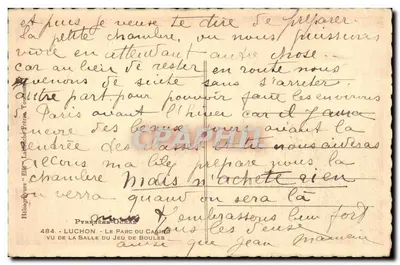 et puis je veux te dire de préparer
la petite chambre, ou nous puissions
vivre en attendant autre chose
car au lieu de rester en route nous
venons de suite sans s'arreter
autre part, pour pouvoir faire les environs
Paris avant l'hiver car il y aura
encore des beaux jours avant la
rentrée des tu nous aideras
ma Lily prépare nous la
chambre mais n'achete rien
on verra quand on sera là
T'embrassons bien fort
tous les deux
ainsi que Jean maman
484. - LUCHON. - LE PARC DU CASINO
VU DE LA SALLE DU JEU DE BOULES
CPARAMA